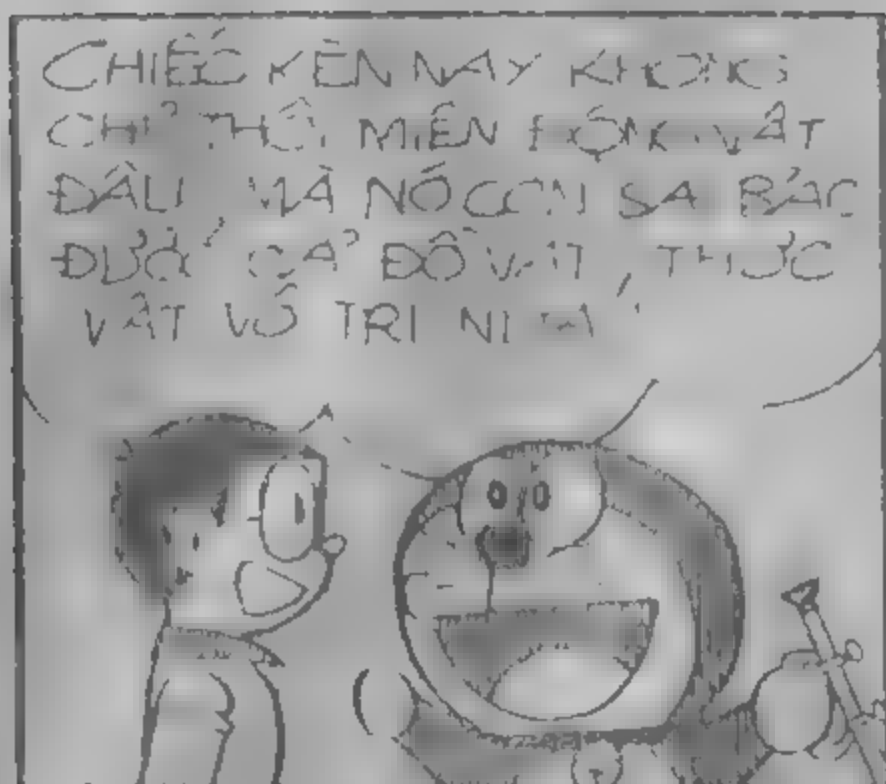 CHIẾC KÈN NÀY KHÔNG
CHỈ THÔI MIÊN ĐỘNG VẬT
ĐÂU, MÀ NÓ CÒN SA
ĐƯỢC CẢ ĐỒ VẬT, THỰC
VẬT VÔ TRI NỮA!